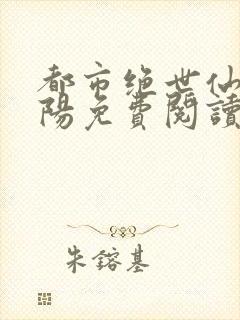 都市绝世仙
陽免費閱讀
朱鎔基